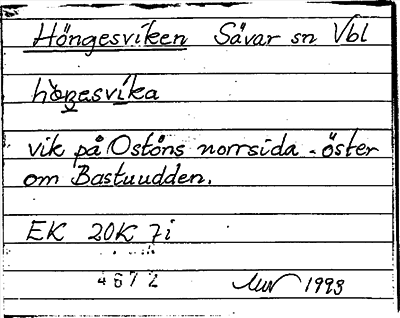 Höngesviken Sävar sn Vbl
vik på Ostöns norrsida - öster
om Bastuudden.
EK 20K 7i
4672 1993